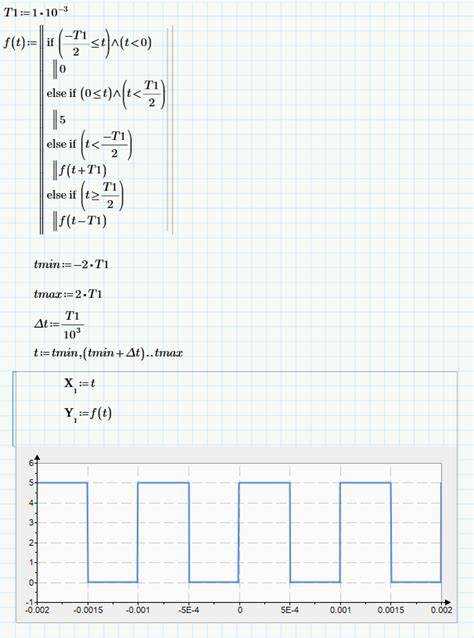 T1:=1•10⁻³
f(t):= if (-T1/2 ≤t)∧(t<0)
0
else if (0≤t)∧(t< T1/2)
5
else if (t< -T1/2)
f(t+T1)
else if (t≥ T1/2)
f(t-T1)
tmin:=-2•T1
tmax:=2•T1
Δt:= T1/10³
t:=tmin,(tmin+Δt)..tmax
X₁:=t
Y₁:=f(t)
6
5
4
3
2
1
0
-1
-0.002 -0.0015 -0.001 -5E-4 0 5E-4 0.001 0.0015 0.002